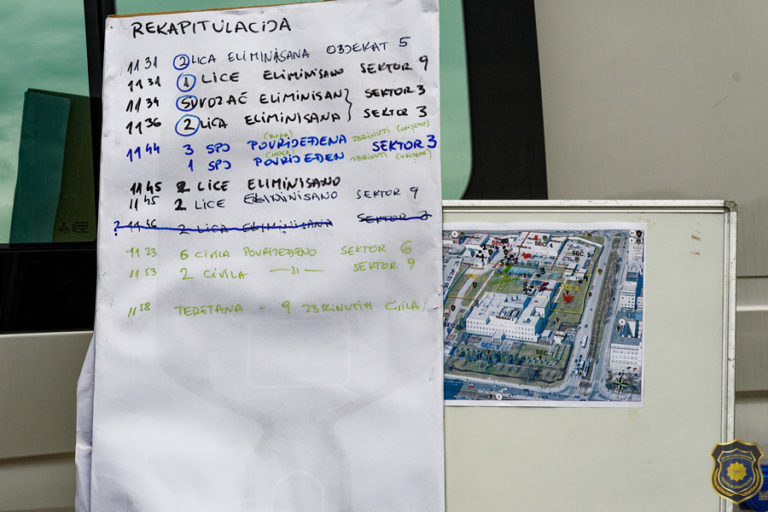 REKAPITULACIJA
11 31 2 LICA ELIMINISANA OBJEKAT 5
11 31 1 LICE ELIMINISANO SEKTOR 9
11 34 SUVOZAČ ELIMINISAN SEKTOR 3
11 36 2 LICA ELIMINISANA SEKTOR 3
(RUKA)
11 44 3 SPJ POVRIJEĐENA ZBRINUTI SEKTOR 3
(NOGA)
1 SPJ POVRIJEĐEN ZBRINUTI
11 45 2 LICE ELIMINISANO
11 45 2 LICE ELIMINISANO SEKTOR 9
? 11 56 2 LICA ELIMINISANA SEKTOR 3
11 23 6 CIVILA POVRIJEĐENO SEKTOR 6
11 53 2 CIVILA —11— SEKTOR 9
11 58 TERETANA - 9 ZBRINUTIH CIVILA
SEC 4